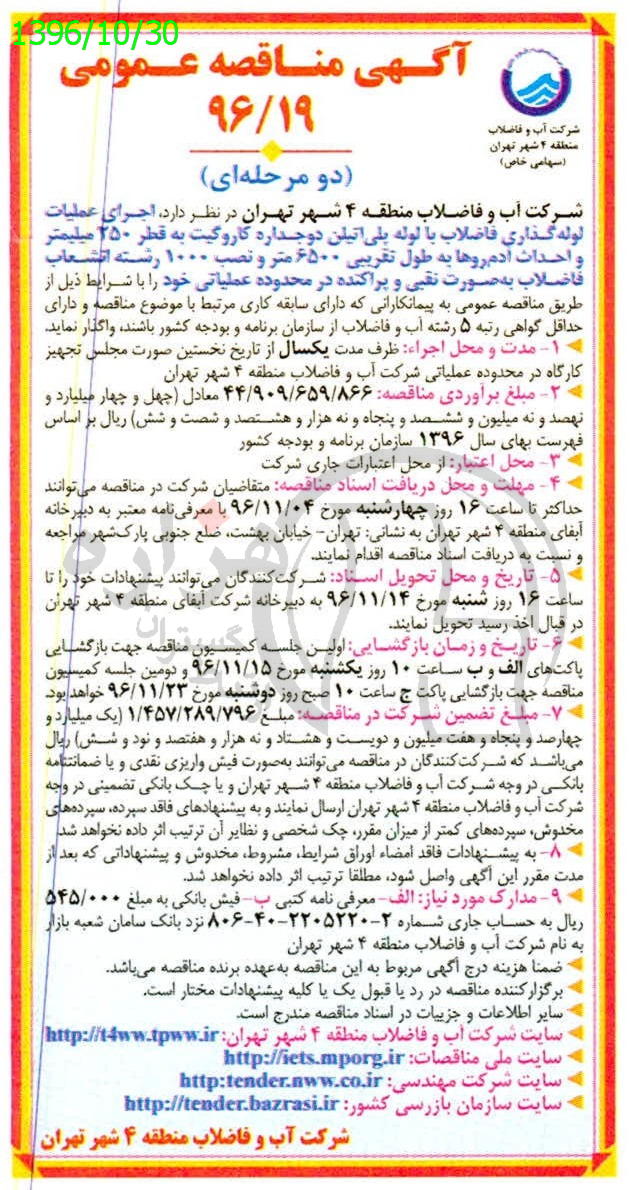 1396/10/30
آگهی مناقصه عمومی
۹۶/۱۹
(دو مرحله‌ای)
شرکت آب و فاضلاب
منطقه ۴ شهر تهران
(سهامی خاص)
شرکت آب و فاضلاب منطقه ۴ شهر تهران در نظر دارد، اجرای عملیات
لوله‌گذاری فاضلاب با لوله پلی‌اتیلن دوجداره کاروگیت به قطر ۲۵۰ میلیمتر
و احداث آدم‌روها به طول تقریبی ۶۵۰۰ متر و نصب ۱۰۰۰ رشته انشعاب
فاضلاب به‌صورت نقبی و پراکنده در محدوده عملیاتی خود را با شرایط ذیل از
طریق مناقصه عمومی به پیمانکارانی که دارای سابقه کاری مرتبط با موضوع مناقصه و دارای
حداقل گواهی رتبه ۵ رشته آب و فاضلاب از سازمان برنامه و بودجه کشور باشند، واگذار نماید.
۱- مدت و محل اجراء: ظرف مدت یکسال از تاریخ نخستین صورت مجلس تجهیز
کارگاه در محدوده عملیاتی شرکت آب و فاضلاب منطقه ۴ شهر تهران
۲- مبلغ برآوردی مناقصه: ۴۴/۹۰۹/۶۵۹/۸۶۶ معادل (چهل و چهار میلیارد و
نهصد و نه میلیون و ششصد و پنجاه و نه هزار و هشتصد و شصت و شش) ریال بر اساس
فهرست بهای سال ۱۳۹۶ سازمان برنامه و بودجه کشور
۳- محل اعتبار: از محل اعتبارات جاری شرکت
۴- مهلت و محل دریافت اسناد مناقصه: متقاضیان شرکت در مناقصه می‌توانند
حداکثر تا ساعت ۱۶ روز چهارشنبه مورخ ۹۶/۱۱/۰۴ با معرفی‌نامه معتبر به دبیرخانه
آبفای منطقه ۴ شهر تهران به نشانی: تهران- خیابان بهشت، ضلع جنوبی پارک‌شهر مراجعه
و نسبت به دریافت اسناد مناقصه اقدام نمایند.
۵- تاریخ و محل تحویل اسناد: شرکت‌کنندگان می‌توانند پیشنهادات خود را تا
ساعت ۱۶ روز شنبه مورخ ۹۶/۱۱/۱۴ به دبیرخانه شرکت آبفای منطقه ۴ شهر تهران
در قبال اخذ رسید تحویل نمایند.
۶- تاریخ و زمان بازگشایی: اولین جلسه کمیسیون مناقصه جهت بازگشایی
پاکت‌های الف و ب ساعت ۱۰ روز یکشنبه مورخ ۹۶/۱۱/۱۵ و دومین جلسه کمیسیون
مناقصه جهت بازگشایی پاکت ج ساعت ۱۰ صبح روز دوشنبه مورخ ۹۶/۱۱/۲۳ خواهد بود.
۷- مبلغ تضمین شرکت در مناقصه: مبلغ ۱/۴۵۷/۲۸۹/۷۹۶ (یک میلیارد و
چهارصد و پنجاه و هفت میلیون و دویست و هشتاد و نه هزار و هفتصد و نود و شش) ریال
می‌باشد که شرکت‌کنندگان در مناقصه می‌توانند به‌صورت فیش واریزی نقدی و یا ضمانتنامه
بانکی در وجه شرکت آب و فاضلاب منطقه ۴ شهر تهران و یا چک بانکی تضمینی در وجه
شرکت آب و فاضلاب منطقه ۴ شهر تهران ارسال نمایند و به پیشنهادهای فاقد سپرده، سپرده‌های
مخدوش، سپرده‌های کمتر از میزان مقرر، چک شخصی و نظایر آن ترتیب اثر داده نخواهد شد.
۸- به پیشنهادات فاقد امضاء اوراق شرایط، مشروط، مخدوش و پیشنهاداتی که بعد از
مدت مقرر این آگهی واصل شود، مطلقا ترتیب اثر داده نخواهد شد.
۹- مدارک مورد نیاز: الف- معرفی نامه کتبی ب- فیش بانکی به مبلغ ۵۴۵/۰۰۰
ریال به حساب جاری شماره ۲-۲۲۰۵۲۲۰-۴۰-۸۰۶ نزد بانک سامان شعبه بازار
به نام شرکت آب و فاضلاب منطقه ۴ شهر تهران
ضمنا هزینه درج آگهی مربوط به این مناقصه به‌عهده برنده مناقصه می‌باشد.
برگزارکننده مناقصه در رد یا قبول یک یا کلیه پیشنهادات مختار است.
سایر اطلاعات و جزییات در اسناد مناقصه مندرج است.
سایت شرکت آب و فاضلاب منطقه ۴ شهر تهران: http://t4ww.tpww.ir
سایت ملی مناقصات: http://iets.mporg.ir
سایت شرکت مهندسی: http:tender.nww.co.ir
سایت سازمان بازرسی کشور: http://tender.bazrasi.ir
شرکت آب و فاضلاب منطقه ۴ شهر تهران